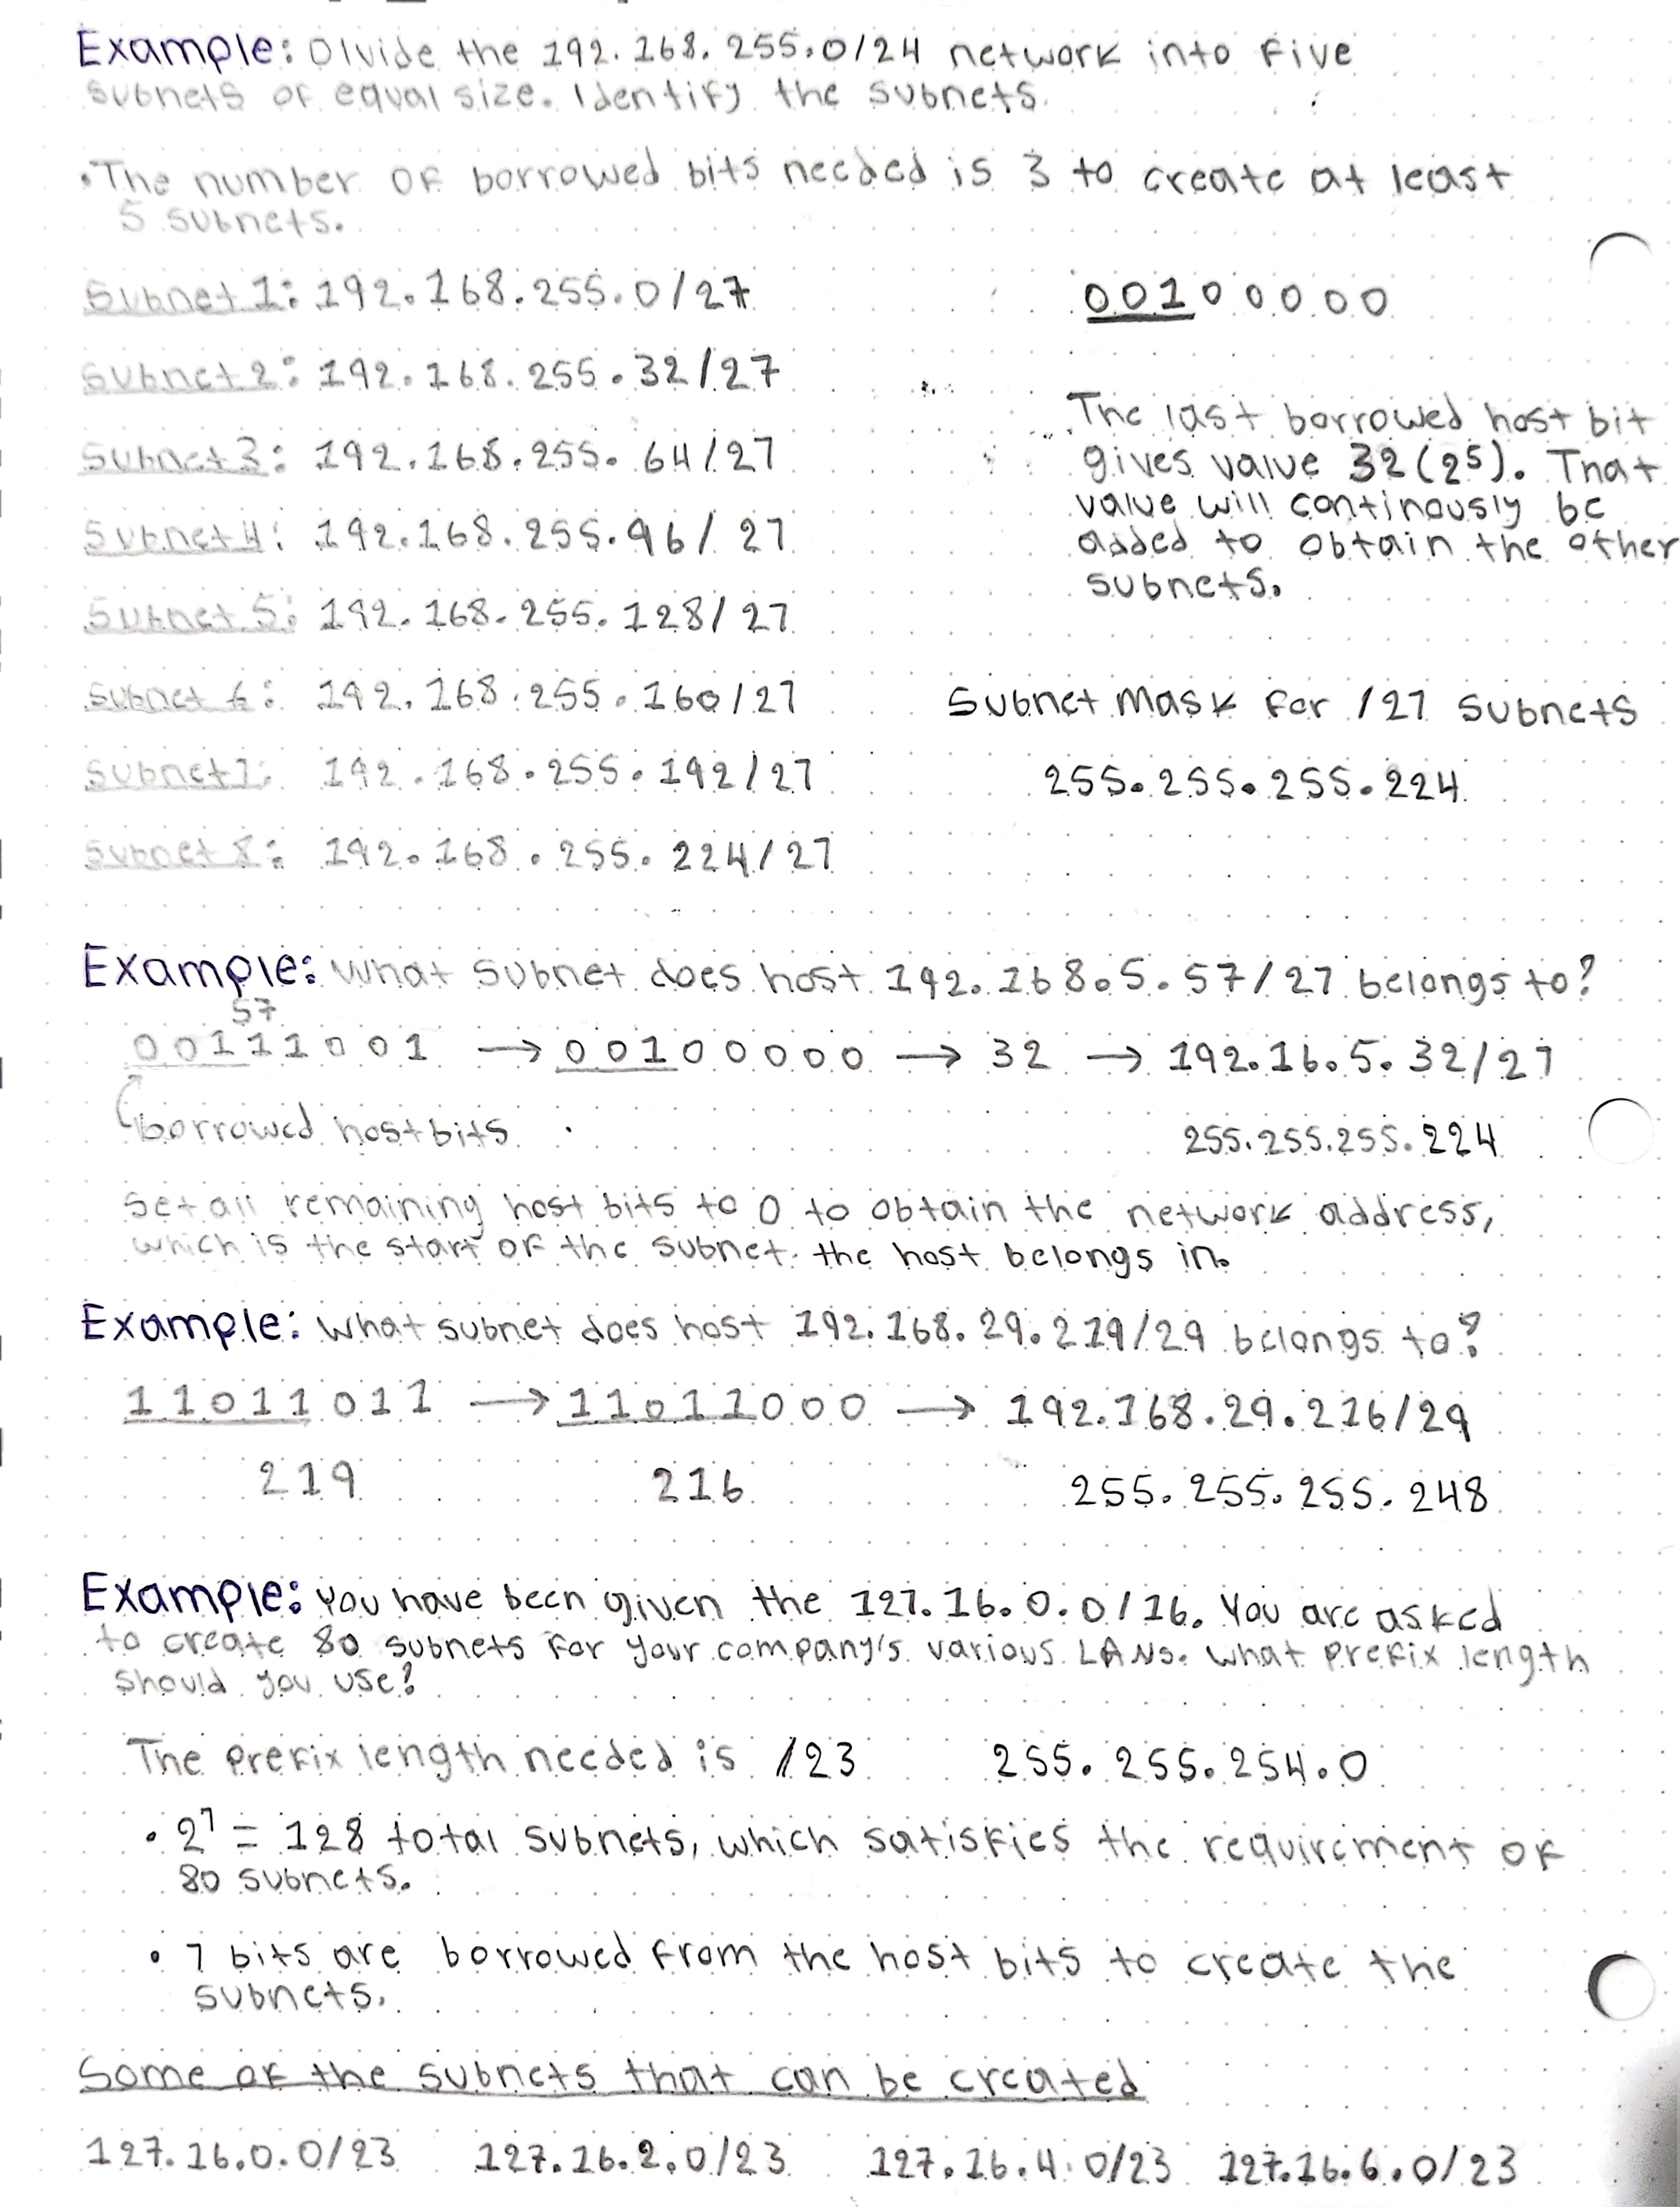 Example: Divide the 192.168.255.0/24 network into five
subnets of equal size. Identify the subnets.
•The number of borrowed bits needed is 3 to create at least
5 subnets.
Subnet 1: 192.168.255.0/27
00100000
Subnet 2: 192.168.255.32/27
The last borrowed host bit
Subnet 3: 192.168.255.64/27
gives value 32 (2⁵). That
value will continously be
Subnet 4: 192.168.255.96/27
added to obtain the other
subnets.
Subnet 5: 192.168.255.128/27
Subnet 6: 192.168.255.160/27
Subnet Mask for /27 subnets
Subnet 7: 192.168.255.192/27
255.255.255.224
Subnet 8: 192.168.255.224/27
Example: What subnet does host 192.168.5.57/27 belongs to?
57
00111001 → 00100000 → 32 → 192.16.5.32/27
borrowed host bits
255.255.255.224
Set all remaining host bits to 0 to obtain the network address,
which is the start of the subnet the host belongs in.
Example: What subnet does host 192.168.29.219/29 belongs to?
11011011 → 11011000 → 192.168.29.216/29
219 216 255.255.255.248
Example: You have been given the 127.16.0.0/16. You are asked
to create 80 subnets for your company's various LANs. What prefix length
should you use?
The prefix length needed is /23 255.255.254.0
• 2⁷ = 128 total subnets, which satisfies the requirement of
80 subnets.
• 7 bits are borrowed from the host bits to create the
subnets.
Some of the subnets that can be created
127.16.0.0/23 127.16.2.0/23 127.16.4.0/23 127.16.6.0/23